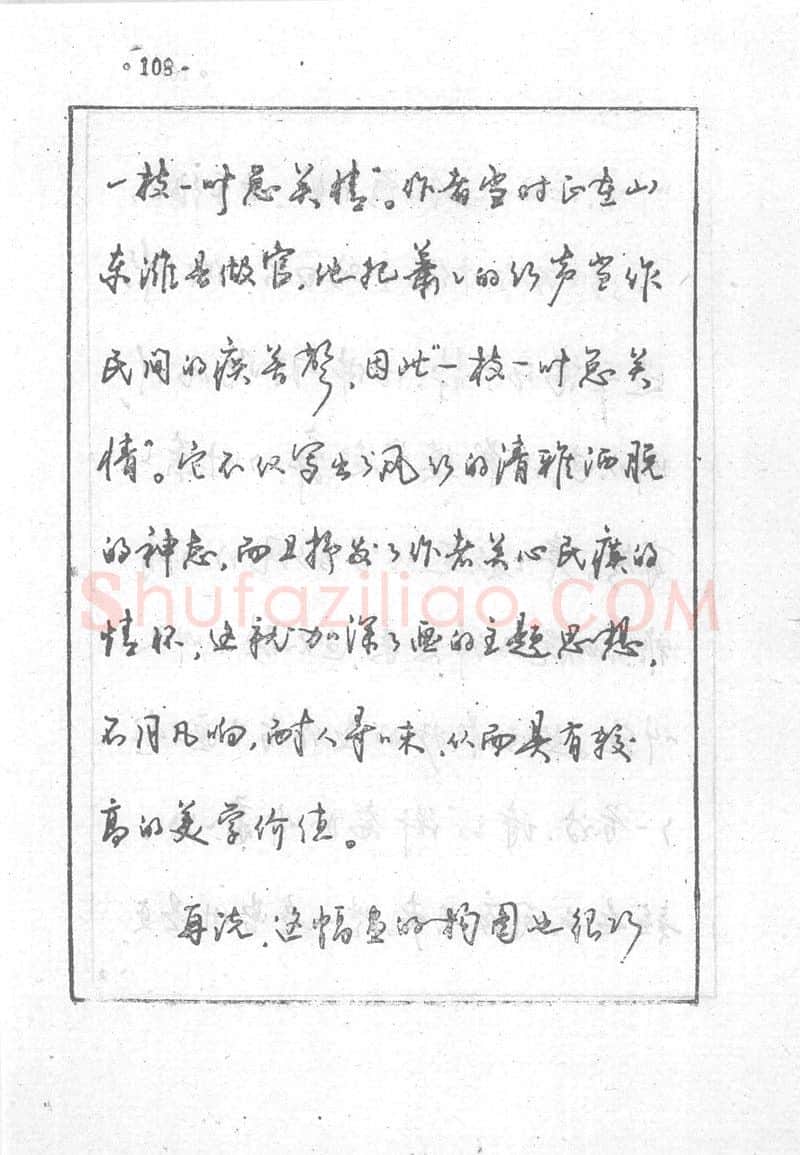 ·108·
一枝一叶总关情”。作者当时正在山
东潍县做官，他把萧萧的竹声当作
民间的疾苦声，因此“一枝一叶总关
情”。它不仅写出了风竹的清雅洒脱
的神态，而且抒发了作者关心民瘼的
情怀，这就加深了画的主题思想，
不同凡响，耐人寻味，从而具有较
高的美学价值。
再说，这幅画的构图也很巧
Shufaziliao.COM